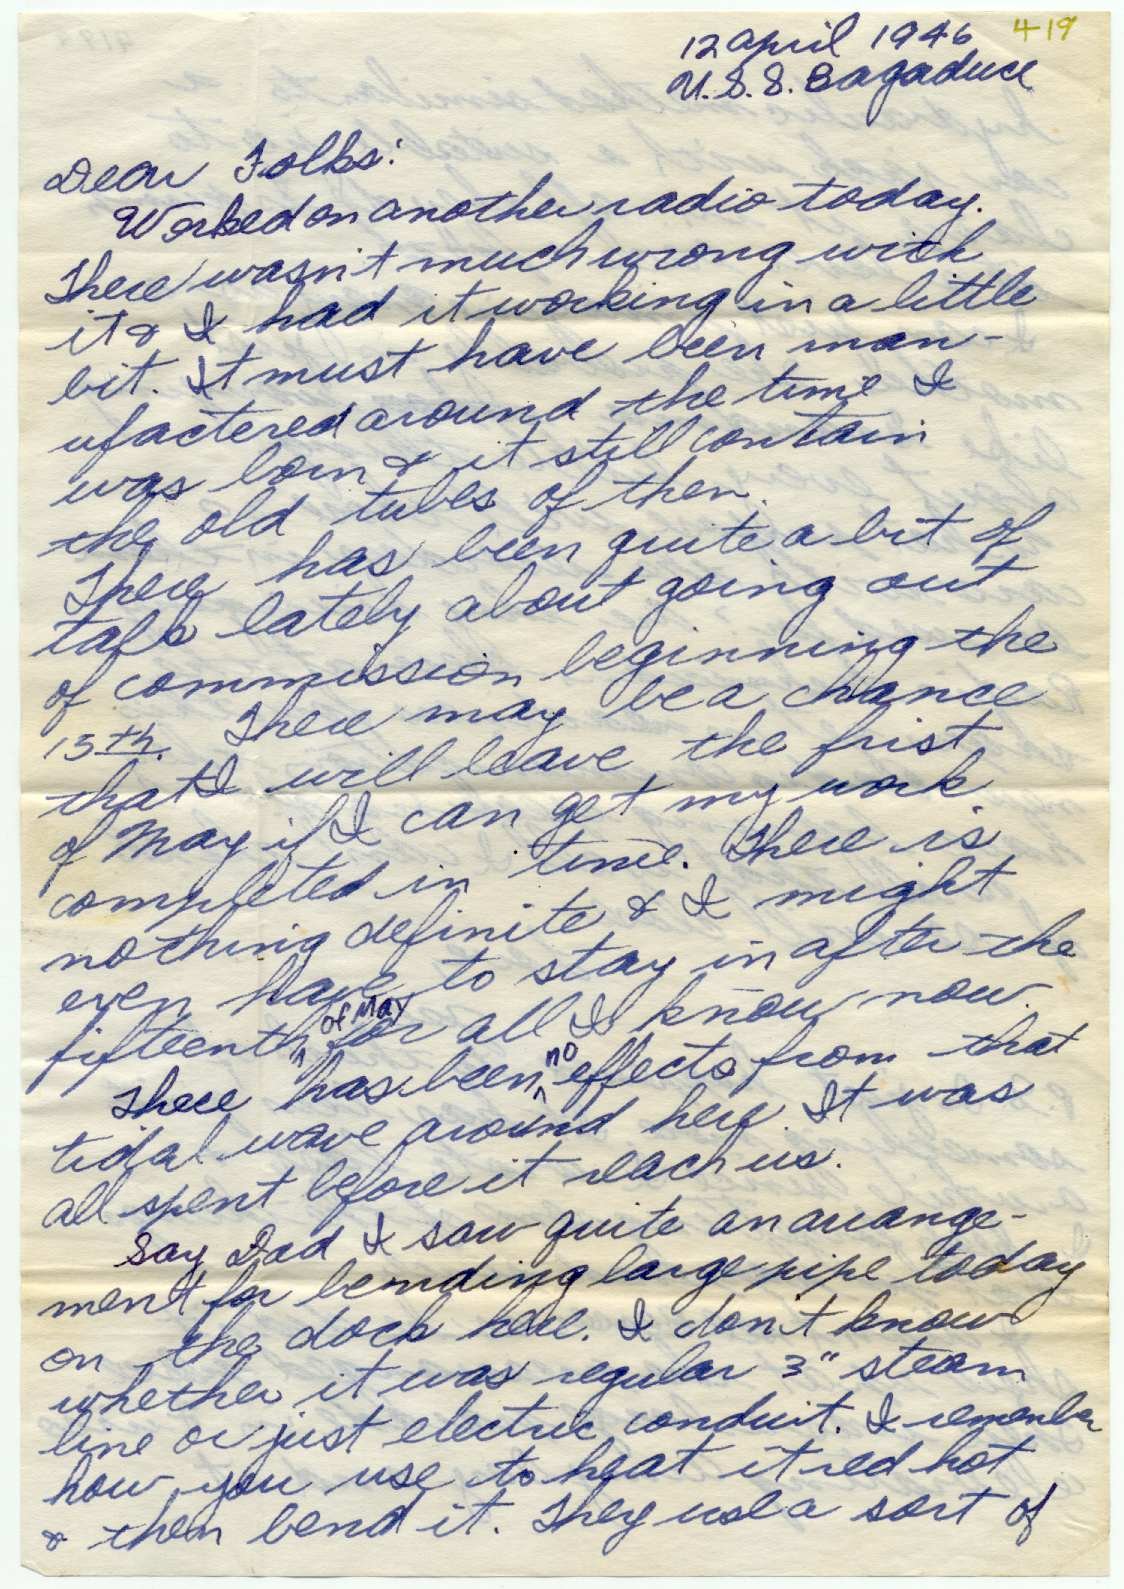 12 April 1946 419
U.S.S. Bagaduce
Dear Folks:
Worked on another radio today.
There wasn't much wrong with
it & I had it working in a little
bit. It must have been man-
ufactered around the time I
was born & it still contain
the old tubes of then.
There has been quite a bit of
talk lately about going out
of commission beginning the
15th. There may be a chance
that I will leave the frist
of May if I can get my work
completed in time. There is
nothing definite & I might
even have to stay in after the
fifteenth of May for all I know now.
There has been no effects from that
tidal wave around here. It was
all spent before it reach us.
Say Dad I saw quite an arrange-
ment for bending large pipe today
on the dock here. I don't know
whether it was regular 3" steam
line or just electric conduit. I remember
how you use to heat it red hot
& then bend it. They use a sort of